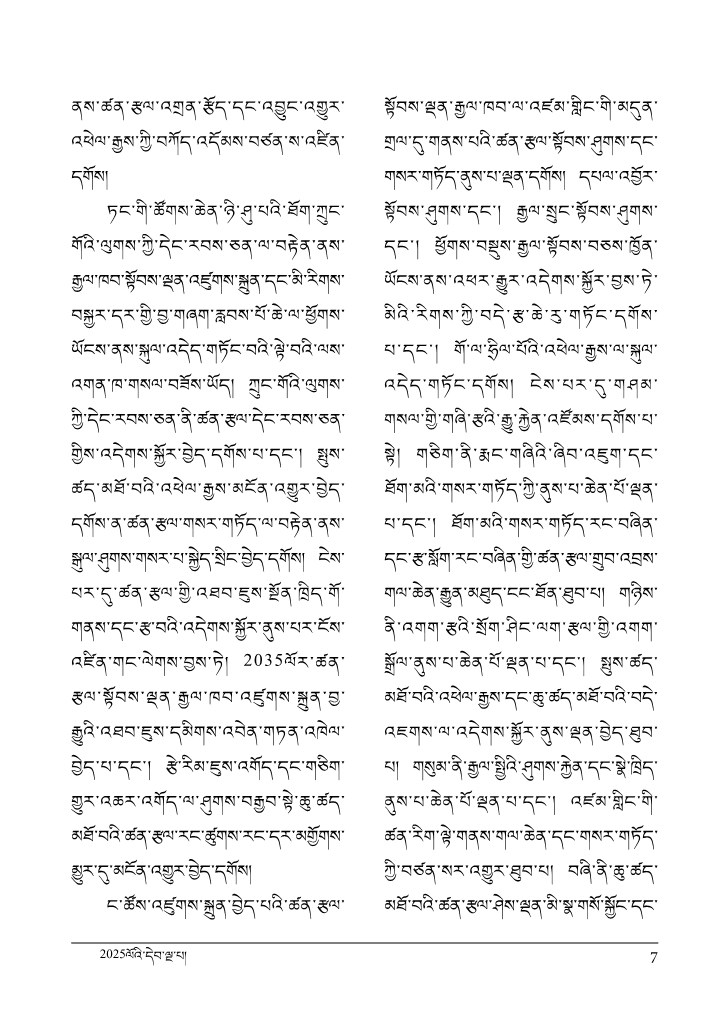 ནས་ཚན་རྩལ་འགྲན་རྩོད་དང་འབྱུང་འགྱུར་
འཕེལ་རྒྱས་ཀྱི་བཀོད་འདོམས་བཙན་ས་འཛིན་
དགོས།
ཏང་གི་ཚོགས་ཆེན་ཉི་ཤུ་པའི་ཐོག་ཀྲུང་
གོའི་ལུགས་ཀྱི་དེང་རབས་ཅན་ལ་བརྟེན་ནས་
རྒྱལ་ཁབ་སྟོབས་ལྡན་འཛུགས་སྐྲུན་དང་མི་རིགས་
བསྐྱར་དར་གྱི་བྱ་གཞག་རླབས་པོ་ཆེ་ལ་ཕྱོགས་
ཡོངས་ནས་སྐུལ་འདེད་གཏོང་བའི་ལྟེ་བའི་ལས་
འགན་ཁ་གསལ་བཟོས་ཡོད། ཀྲུང་གོའི་ལུགས་
ཀྱི་དེང་རབས་ཅན་ནི་ཚན་རྩལ་དེང་རབས་ཅན་
གྱིས་འདེགས་སྐྱོར་བྱེད་དགོས་པ་དང་། སྤུས་
ཚད་མཐོ་བའི་འཕེལ་རྒྱས་མངོན་འགྱུར་བྱེད་
དགོས་ན་ཚན་རྩལ་གསར་གཏོད་ལ་བརྟེན་ནས་
སྒུལ་ཤུགས་གསར་པ་སྐྱེད་སྲིང་བྱེད་དགོས། ངེས་
པར་དུ་ཚན་རྩལ་གྱི་འཐབ་ཇུས་སྔོན་ཁྲིད་གོ་
གནས་དང་རྩ་བའི་འདེགས་སྐྱོར་ནུས་པར་ངོས་
འཛིན་གང་ལེགས་བྱས་ཏེ། 2035ལོར་ཚན་
རྩལ་སྟོབས་ལྡན་རྒྱལ་ཁབ་འཛུགས་སྐྲུན་བྱ་
རྒྱུའི་འཐབ་ཇུས་དམིགས་འབེན་གཏན་འཁེལ་
བྱེད་པ་དང་། རྩེ་རིམ་ཇུས་འགོད་དང་གཅིག་
གྱུར་འཆར་འགོད་ལ་ཤུགས་བརྒྱབ་སྟེ་ཆུ་ཚད་
མཐོ་བའི་ཚན་རྩལ་རང་ཚུགས་རང་དར་མགྱོགས་
མྱུར་དུ་མངོན་འགྱུར་བྱེད་དགོས།
ང་ཚོས་འཛུགས་སྐྲུན་བྱེད་པའི་ཚན་རྩལ་
སྟོབས་ལྡན་རྒྱལ་ཁབ་ལ་འཛམ་གླིང་གི་མདུན་
གྲལ་དུ་གནས་པའི་ཚན་རྩལ་སྟོབས་ཤུགས་དང་
གསར་གཏོད་ནུས་པ་ལྡན་དགོས། དཔལ་འབྱོར་
སྟོབས་ཤུགས་དང་། རྒྱལ་སྲུང་སྟོབས་ཤུགས་
དང་། ཕྱོགས་བསྡུས་རྒྱལ་སྟོབས་བཅས་ཁྱོན་
ཡོངས་ནས་འཕར་རྒྱུར་འདེགས་སྐྱོར་བྱས་ཏེ་
མིའི་རིགས་ཀྱི་བདེ་རྩ་ཆེ་རུ་གཏོང་དགོས་
པ་དང་། གོ་ལ་ཧྲིལ་པོའི་འཕེལ་རྒྱས་ལ་སྐུལ་
འདེད་གཏོང་དགོས། ངེས་པར་དུ་གཤམ་
གསལ་གྱི་གཞི་རྩའི་རྒྱུ་རྐྱེན་འཛོམས་དགོས་པ་
སྟེ། གཅིག་ནི་རྨང་གཞིའི་ཞིབ་འཇུག་དང་
ཐོག་མའི་གསར་གཏོད་ཀྱི་ནུས་པ་ཆེན་པོ་ལྡན་
པ་དང་། ཐོག་མའི་གསར་གཏོད་རང་བཞིན་
དང་རྩ་སློག་རང་བཞིན་གྱི་ཚན་རྩལ་གྲུབ་འབྲས་
གལ་ཆེན་རྒྱུན་མཐུད་ངང་ཐོན་ཐུབ་པ། གཉིས་
ནི་འགག་རྩའི་སྲོག་ཤིང་ལག་རྩལ་གྱི་འགག་
སྒྲོལ་ནུས་པ་ཆེན་པོ་ལྡན་པ་དང་། སྤུས་ཚད་
མཐོ་བའི་འཕེལ་རྒྱས་དང་ཆུ་ཚད་མཐོ་བའི་བདེ་
འཇགས་ལ་འདེགས་སྐྱོར་ནུས་ལྡན་བྱེད་ཐུབ་
པ། གསུམ་ནི་རྒྱལ་སྤྱིའི་ཤུགས་རྐྱེན་དང་སྣེ་ཁྲིད་
ནུས་པ་ཆེན་པོ་ལྡན་པ་དང་། འཛམ་གླིང་གི་
ཚན་རིག་ལྟེ་གནས་གལ་ཆེན་དང་གསར་གཏོད་
ཀྱི་བཙན་སར་འགྱུར་ཐུབ་པ། བཞི་ནི་ཆུ་ཚད་
མཐོ་བའི་ཚན་རྩལ་ཤེས་ལྡན་མི་སྣ་གསོ་སྐྱོང་དང་
2025ལོའི་དེབ་ལྔ་པ།
7